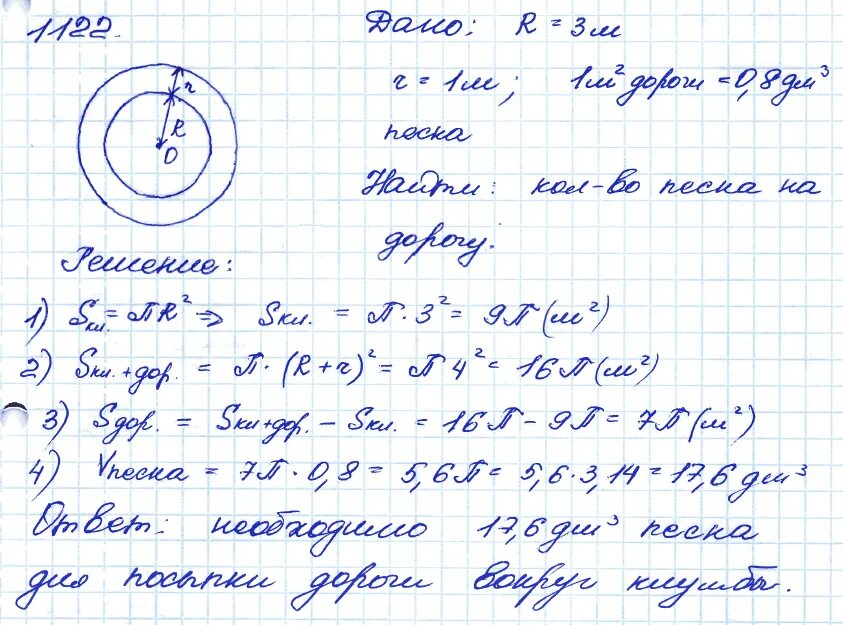 1122.
Дано: R = 3м
r = 1м; 1м² дороги = 0,8 дм³
песка
Найти: кол-во песка на
дорогу.
r
R
O
Решение:
1) Sкл. = πR² => Sкл. = π·3² = 9π (м²)
2) Sкл.+дор. = π·(R+r)² = π4² = 16π (м²)
3) Sдор. = Sкл+дор. - Sкл. = 16π - 9π = 7π (м²)
4) Vпеска = 7π·0,8 = 5,6π = 5,6·3,14 = 17,6 дм³
Ответ: необходимо 17,6 дм³ песка
для посыпки дороги вокруг клумбы.